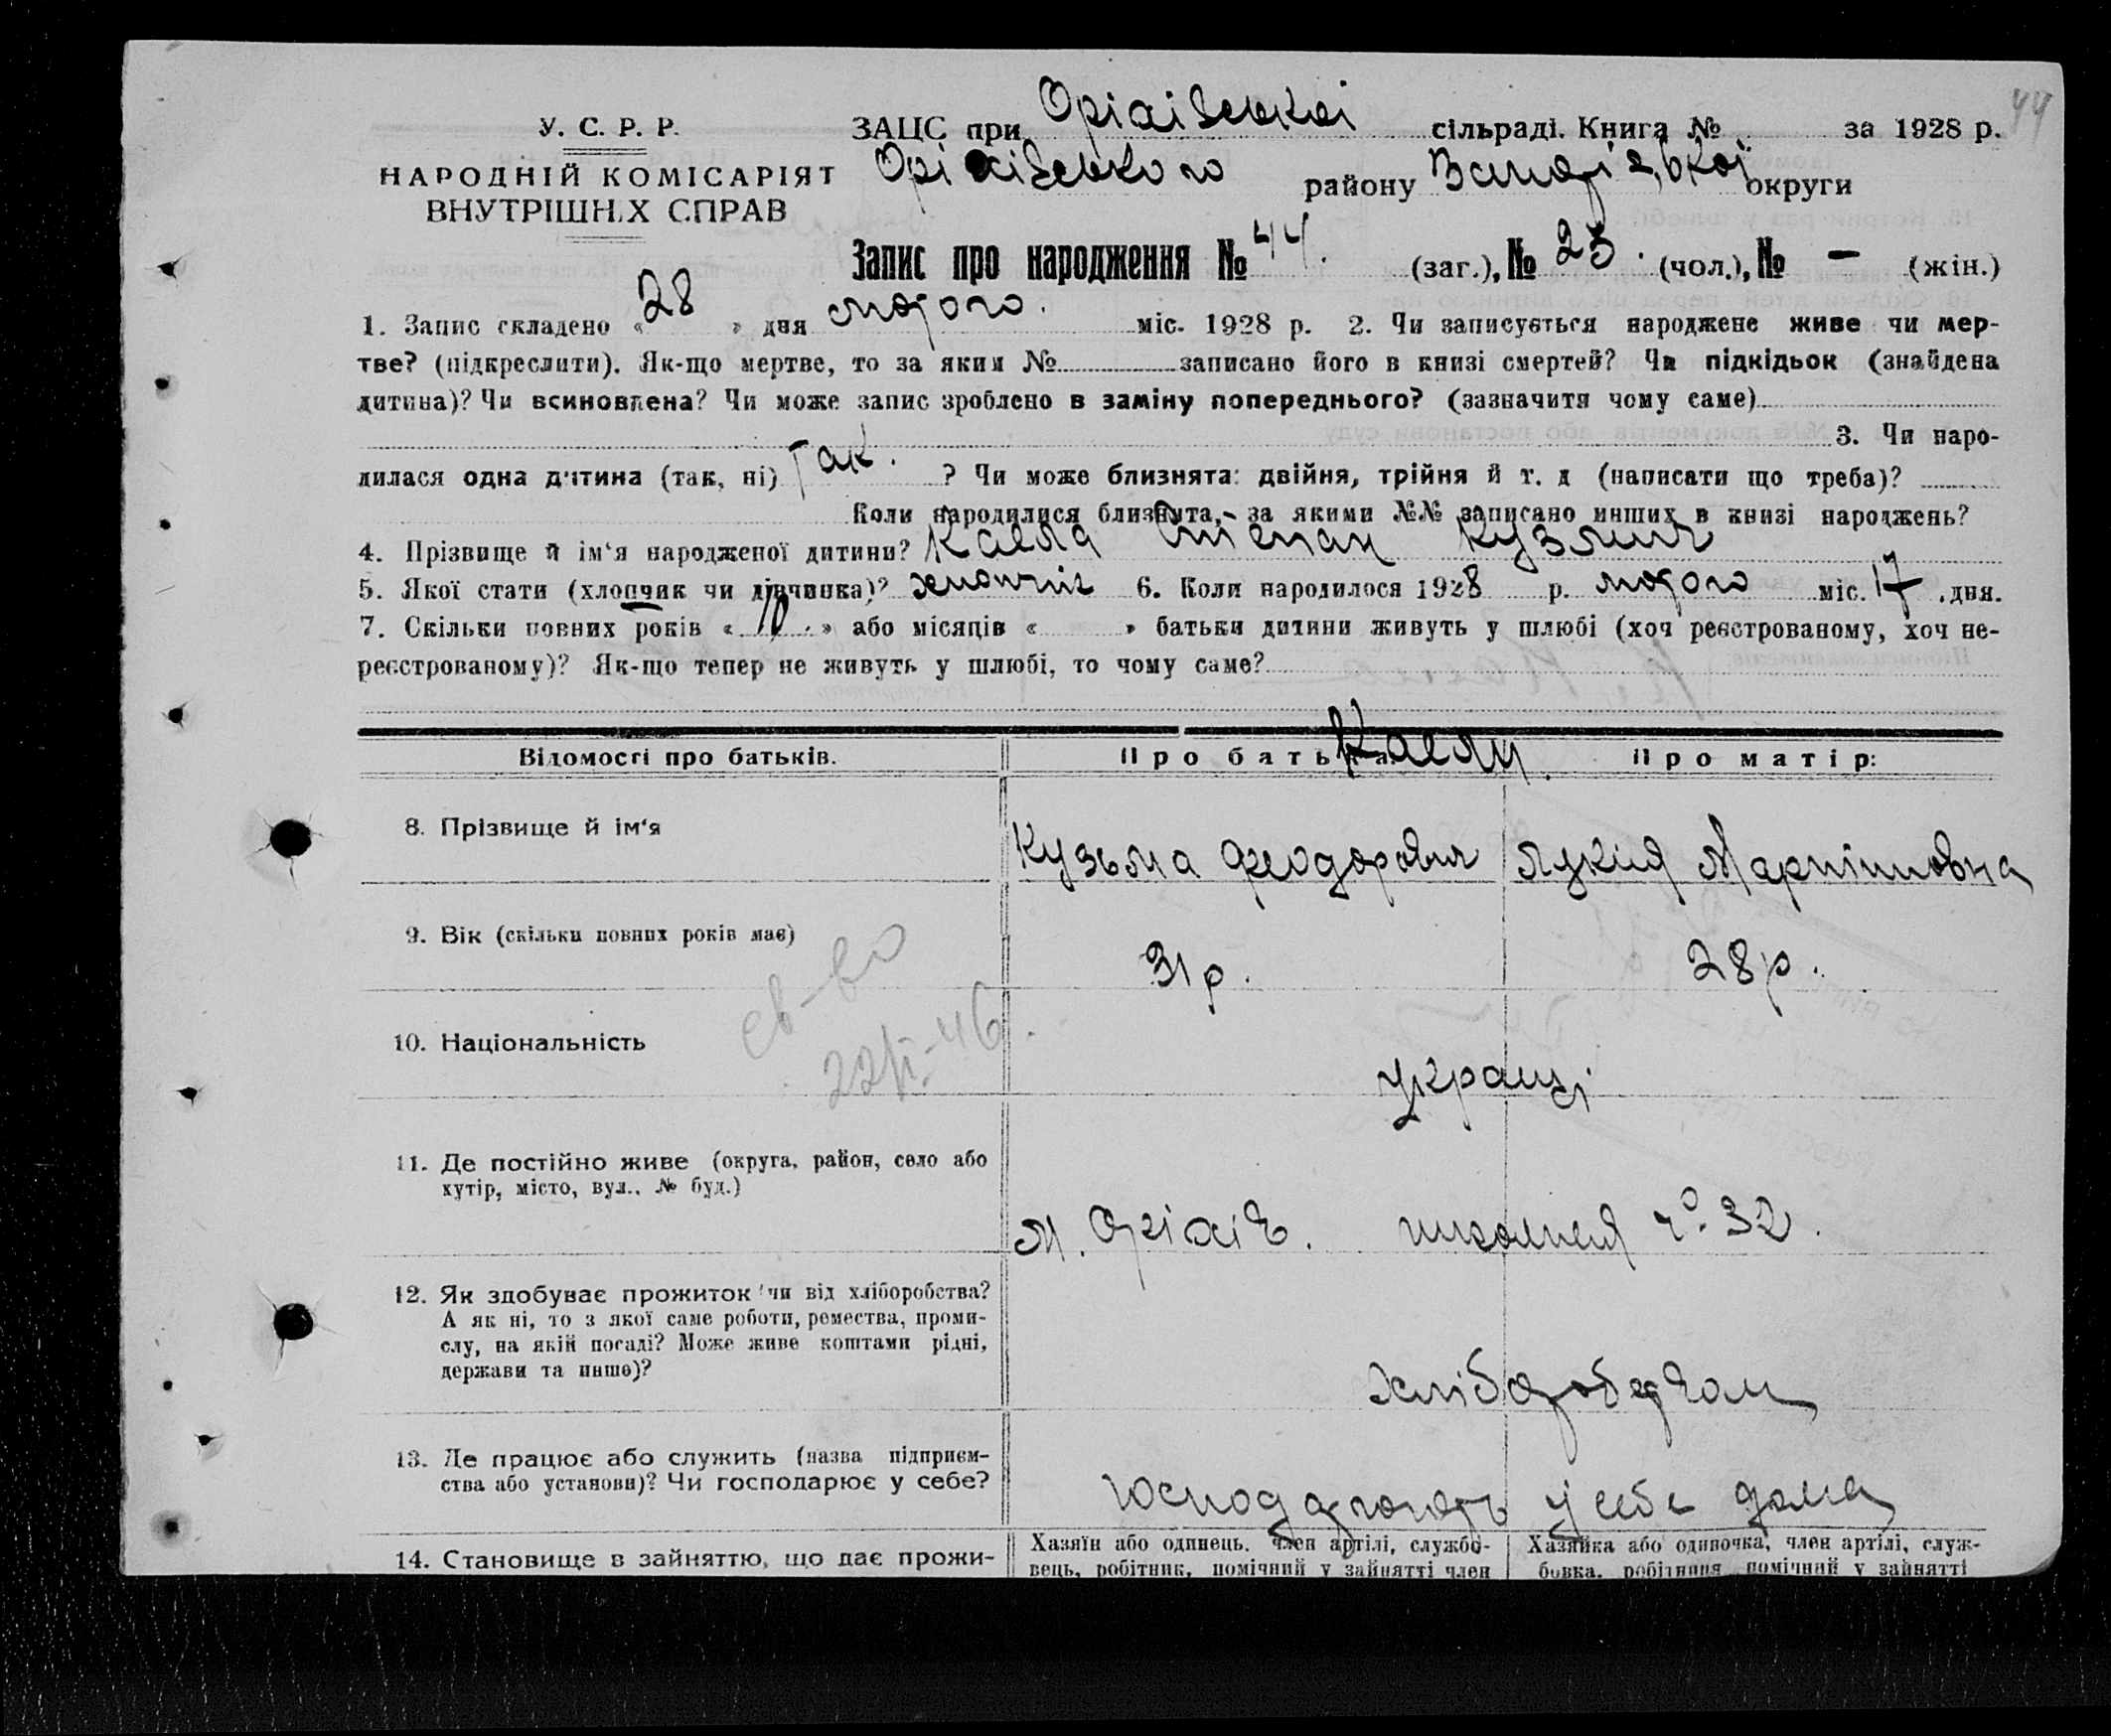 44
У. С. Р. Р.
НАРОДНІЙ КОМІСАРІЯТ
ВНУТРІШНІХ СПРАВ
ЗАЦС при Оріхівській сільраді. Книга № за 1928 р.
Оріхівського району Запорізької округи
Запис про народження № 44. (заг.), № 23. (чол.), № — (жін.)
1. Запис складено « 28 » дня лютого. міс. 1928 р. 2. Чи записується народжене живе чи мер-
тве? (підкреслити). Як-що мертве, то за яким № записано його в книзі смертей? Чи підкідьок (знайдена
дитина)? Чи всиновлена? Чи може запис зроблено в заміну попереднього? (зазначити чому саме)
3. Чи наро-
дилася одна дитина (так, ні) Так. ? Чи може близнята: двійня, трійня й т. д (написати що треба)?
Коли народилися близнята, за якими №№ записано инших в книзі народжень?
4. Прізвище й ім‘я народженої дитини? Степан Кузьмич
5. Якої стати (хлопчик чи дівчинка)? хлопчик 6. Коли народилося 1928 р. лютого міс. 17 .дня.
7. Скільки повних років « 10. » або місяців « » батьки дитини живуть у шлюбі (хоч реєстрованому, хоч не-
реєстрованому)? Як-що тепер не живуть у шлюбі, то чому саме?
Відомості про батьків. Про батька Про матір:
8. Прізвище й ім‘я Кузьма Феодорович Лукія Мартиновна
9. Вік (скільки повних років має) 31 р. 28 р.
св-во
10. Національність українці
11. Де постійно живе (округа, район, село або
хутір, місто, вул.. № буд.)
м. Оріхів. школьная № 32.
12. Як здобуває прожиток чи від хліборобства?
А як ні, то з якої саме роботи, ремества, проми-
слу, на якій посаді? Може живе коштами рідні,
держави та инше)?
хліборобством
13. Де працює або служить (назва підприєм-
ства або установи)? Чи господарює у себе?
господарюють у себе дома
14. Становище в зайняттю, що дає прожи-
Хазяїн або одинець. член артілі, службо-
вець, робітник, помічний у зайнятті член
Хазяйка або одиночка, член артілі, служ-
бовка. робітниця помічний у зайнятті